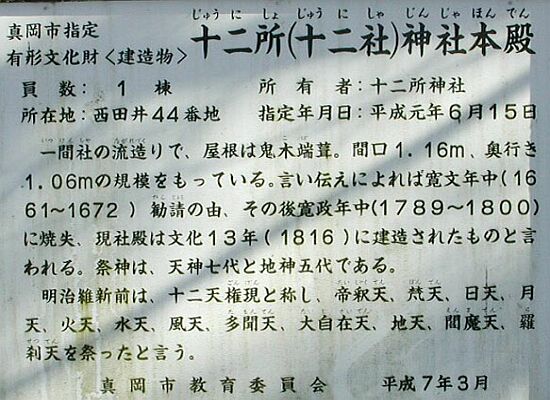 真岡市指定
有形文化財〈建造物〉
じゅうにしょ じゅうにしゃ じんじゃほんでん
十二所(十二社)神社本殿
員数：1棟 所有者：十二所神社
所在地：西田井44番地 指定年月日：平成元年6月15日
いっけんしゃ ながれづく こば
一間社の流造りで、屋根は鬼木端葺。間口1.16m、奥行き
1.06mの規模をもっている。言い伝えによれば寛文年中(16
かんじょう
61～1672）勧請の由、その後寛政年中(1789～1800)
に焼失、現社殿は文化13年(1816)に建造されたものと言
われる。祭神は、天神七代と地神五代である。
明治維新前は、十二天権現と称し、帝釈天、梵天、日天、月
天、火天、水天、風天、多聞天、大自在天、地天、閻魔天、羅
刹天を祭ったと言う。
真岡市教育委員会 平成7年3月